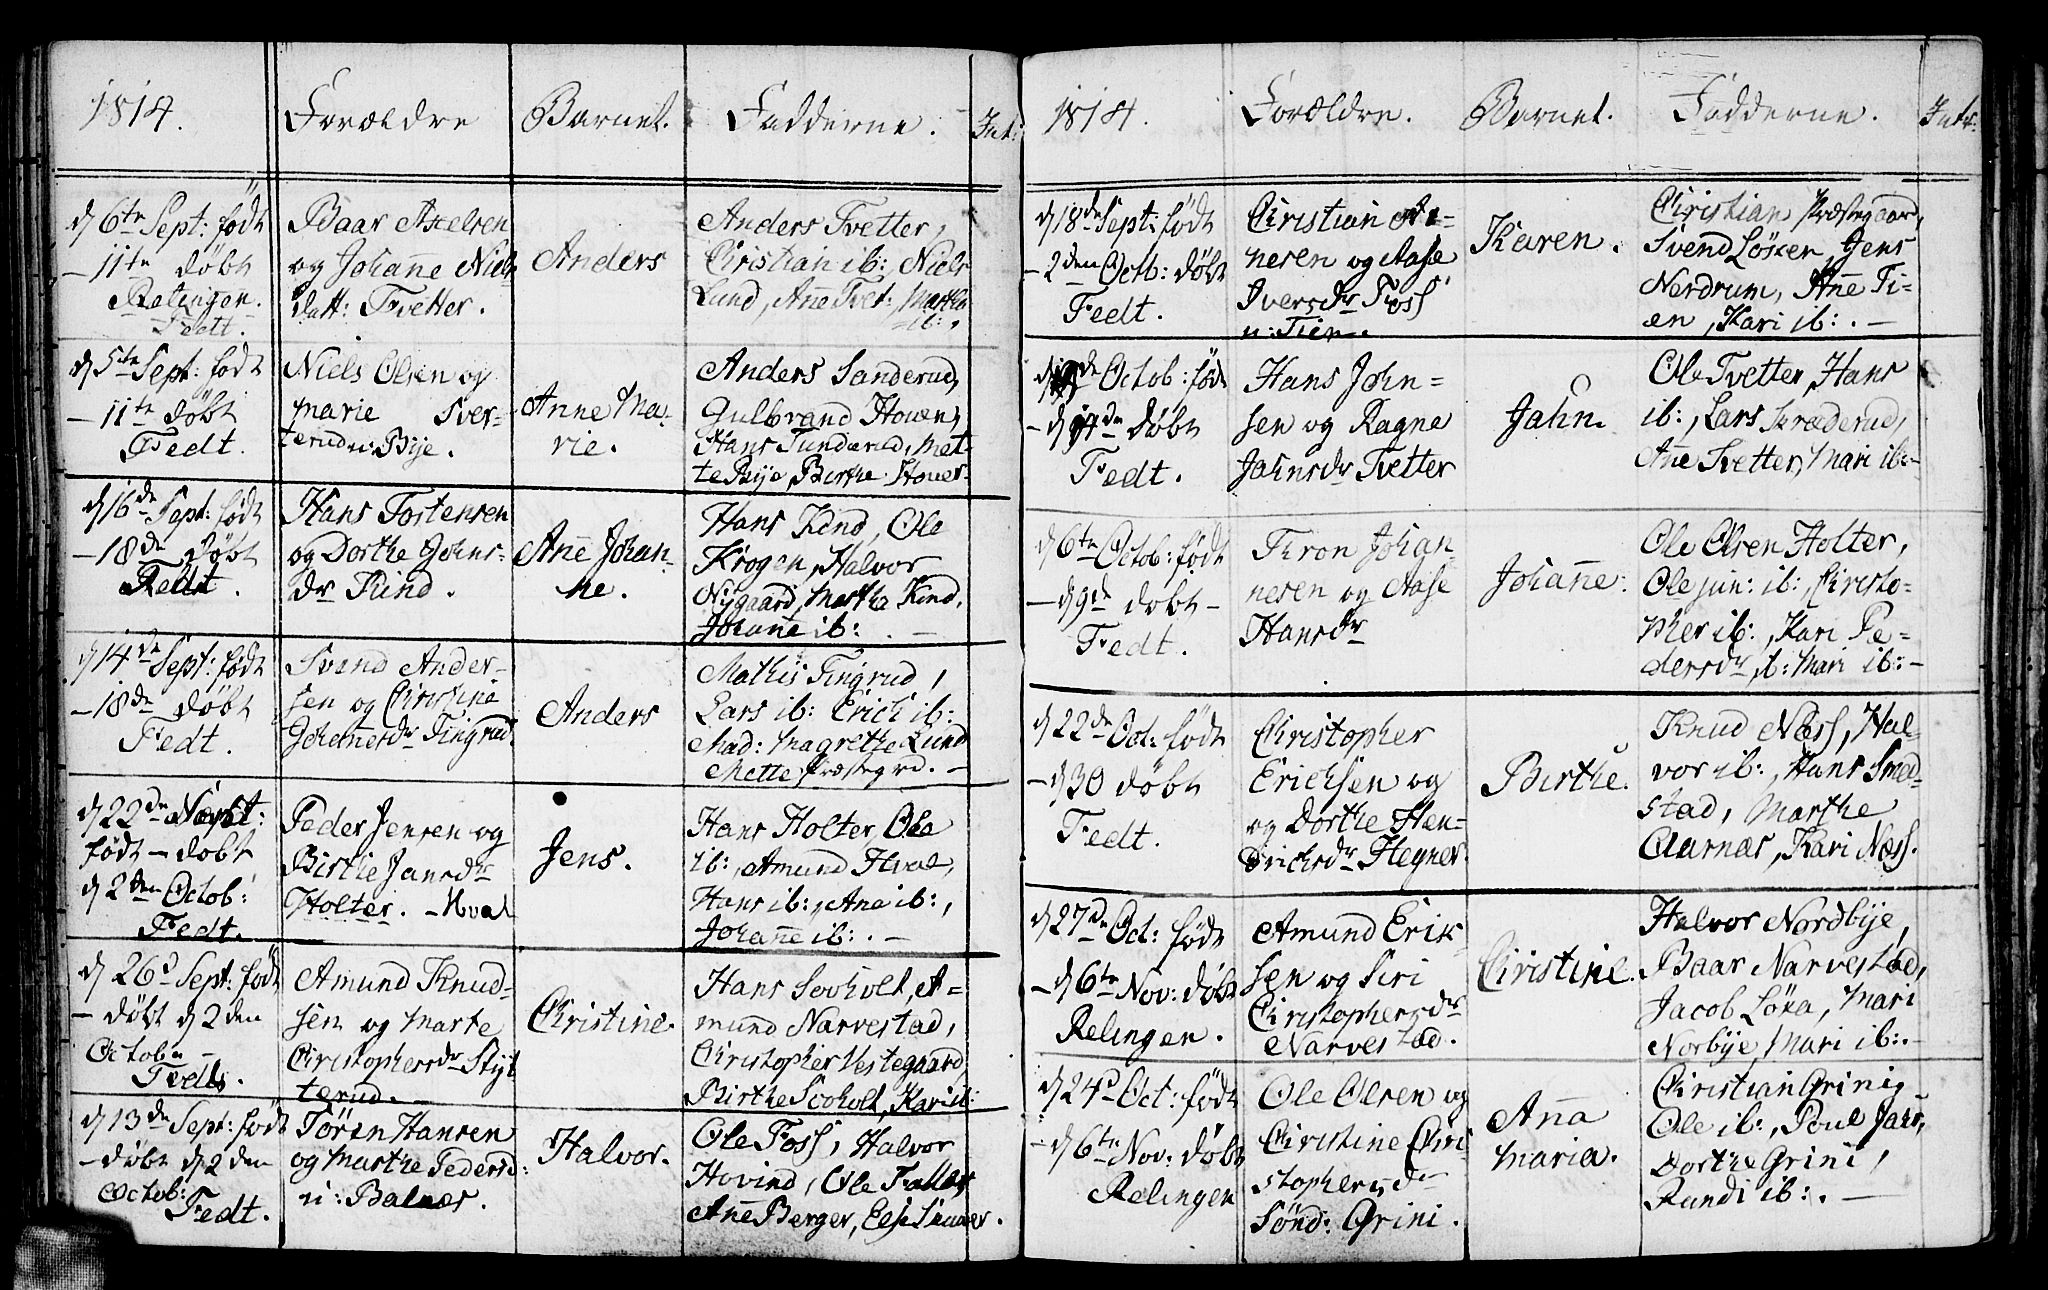 1814.
Forældre
Barnet.
Fadderne.
Int:
d 6te Sept: født
– 11te døbt
Relingen.
Fedt.
Baar Axelsen
og Johañe Niels
datt: Tvetter.
Anders
Anders Tvetter,
Christian ib:, Niels
Lund, Añe Tvet:, Marthe
ib:.
d 5te Sept: født
– 11te døbt
Fedt.
Niels Olsen og
Marie Sver-
terud u: Bije.
Anne Ma-
rie.
Anders Sanderud,
Gulbrand Houen,
Hans Tunderud, Met-
te Bije, Birthe Houer-
d 16de Sept: født
– 18de døbt
Fedt.
Hans Tostensen
og Dorthe Johns-
dr Kind.
Añe Johan-
ne.
Hans Kind, Ole
Krogen, Halvor
Nygaard, Martha Kind,
Johañe ib: . –
d 14de Sept: født
– 18de døbt
Fedt.
Svend Ander-
sen og Christine
Johañesdr Tingrud.
Anders
Mathis Tingrud,
Lars ib: Erich ib:
Mad: Magrethe Lund
Mette Præstegrd. –
d 22de Sept:
født – døbt
d 2den Octob:
Fedt.
Peder Jensen og
Birthe Jansdr
Holter. – Hval
Jens.
Hans Holter, Ole
ib:, Amund Hval,
Hans ib:, Ane ib:,
Johañe ib: . –
d 26d Sept: født
– døbt d 2den
Octobr –
Fedt.
Amund Knud-
sen og Marte
Christophersdr Styt
terud. –
Christine.
Hans Sooholt, A-
mund Narvestad,
Christopher Vestegaard,
Birthe Sooholt, Kari ib:
d 13de Sept: født
– døbt d 2den
Octob:
Fedt.
Törin Hansen
og Marthe Pedersd:
u: Balnes.
Halvor.
Ole Foss, Halvor
Hovind, Ole
Añe Berger, Else
1814.
Forældre.
Barnet.
Fadderne.
Intr:
d 18de Sept: født
– 2den Octb: døbt
Fedt.
Christian Ar-
nesen og Aase
Iversdr Foss
u: Tien.
Karen.
Christian Præstegaard,
Svend Löken, Jens
Nerdrum, Añe Ti-
en, Kari ib: . –
Octob: født
døbt
Fedt.
Hans John-
sen og Ragne
Jahnsdr Tvetter
Jahn.
Ole Tvetter, Hans
ib:, Lars Kræderud,
Añe Tvetter, Mari ib: –
d 6te Octob: født
– d 9de døbt –
Fedt.
Thron Johan-
nesen og Aase
Hansdr
Johañe.
Ole Olsen Holter,
Ole jun: ib:, Christo-
pher ib:, Kari Pe-
dersdr ib: Mari ib: –
d 22de Oct: født
– d 30 døbt
Fedt.
Christopher
Ericksen og
og Dorthe Hen-
drichsdr Hegner.
Birthe.
Knud Næss, Hal-
vor ib:, Hans Smed-
stad, Marthe
Aarnæs, Kari Næss.
d 27de Oct: født
– d 6te Nov: døbt
Relingen.
Amund Erik
sen og Siri
Christophersdr
Narvestad.
Christine.
Halvor Nordbije,
Baar Narvestad,
Jacob Löka, Mari
Norbije, Mari ib: –
d 24d Oct: født
– d 6te Nov: døbt
Relingen
Ole Olsen og
Christine Chri-
stophersdr
Sönd: Grini.
Aña
Maria.
Christian Grini,
Ole ib:, Poul Jahr,
Dorthe Grini,
Randi ib: . –